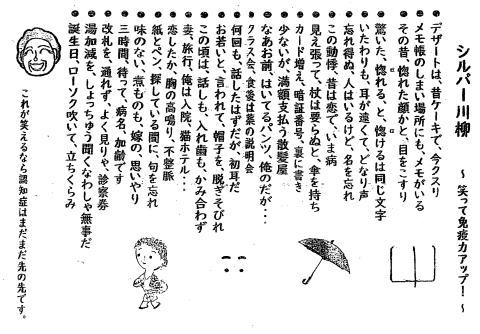 シルバー川柳　～ 笑って免疫力アップ！～
デザートは、昔ケーキで、今クスリ
メモ帳のしまい場所にも、メモがいる
その昔、惚れた顔かと、目をこすり
驚いた、惚れる、と、惚けるは同じ文字
いたわりも、耳が遠くて、どなり声
忘れ得ぬ、人はいるけど、名を忘れ
この動悸、昔は恋で、いま病
見え張って、杖は要らぬと、傘を持ち
カード増え、暗証番号、裏に書き
少ないが、満額支払う散髪屋
なあお前、はいてるパンツ、俺のだが・・・
クラス会、食後は薬の説明会
何回も、話したはずだが、初耳だ
お若いと、言われて、帽子を、脱ぎそびれ
この頃は、話しも、入れ歯も、かみ合わず
妻、旅行、俺は入院、猫ホテル・・・
恋したか、胸の高鳴り、不整脈
紙とペン、探している間に、句を忘れ
味のない、煮ものも、嫁の、思いやり
三時間、待って、病名、加齢です
改札を、通れず、よく見りゃ、診察券
湯加減を、しょっちゅう聞くなわしゃ無事だ
誕生日、ローソク吹いて、立ちくらみ
これが笑えるなら認知症はまだまだ先の先です。